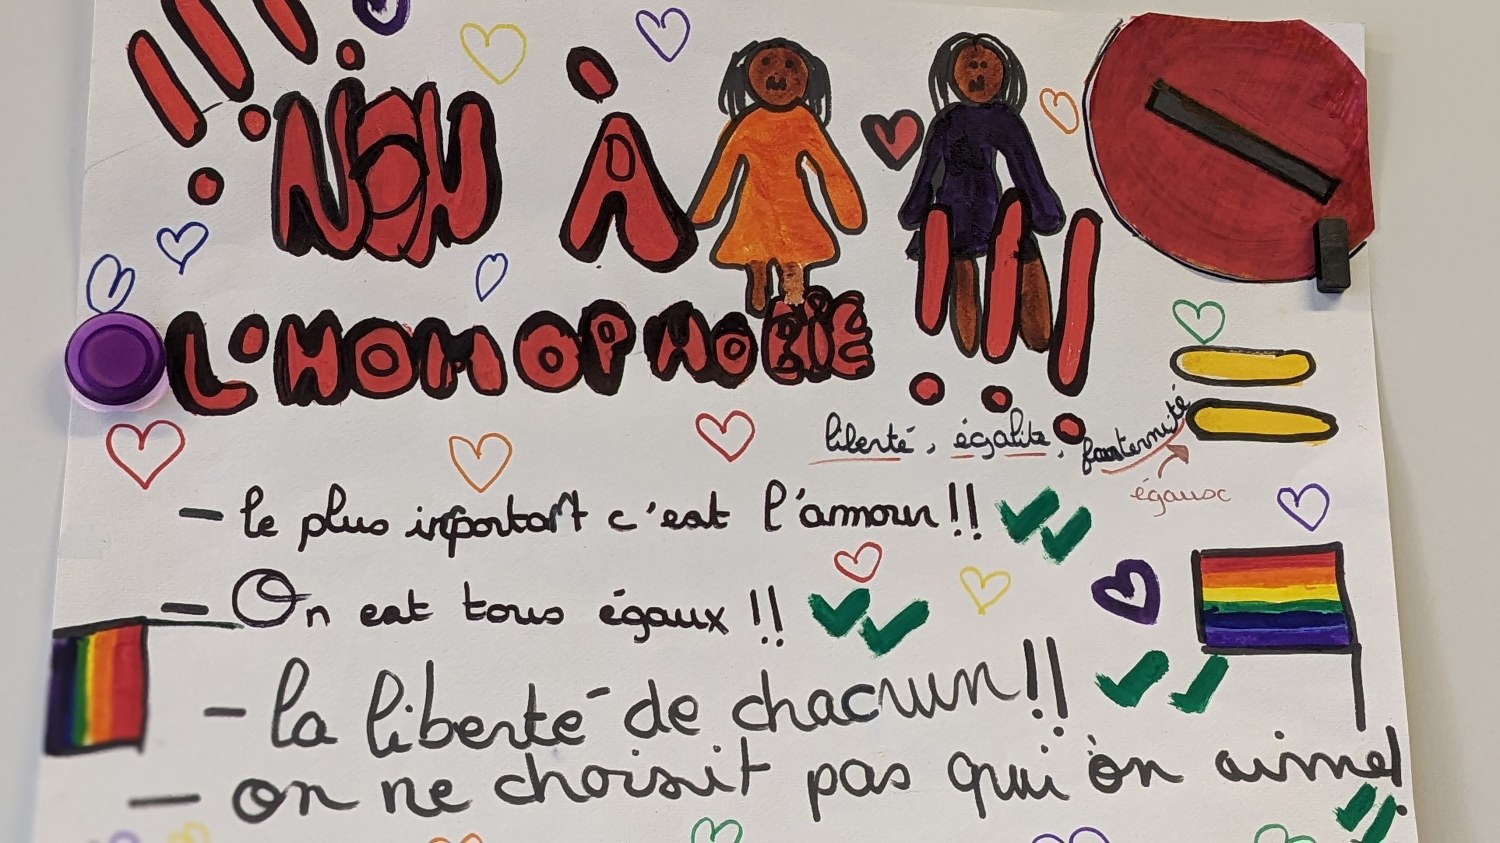 !!! NON À
L'HOMOPHOBIE !!!
liberté, égalité, fraternité
égaux
- le plus important c'est l'amour !!
- On est tous égaux !!
- la liberté de chacun !!
- on ne choisit pas qui on aime!